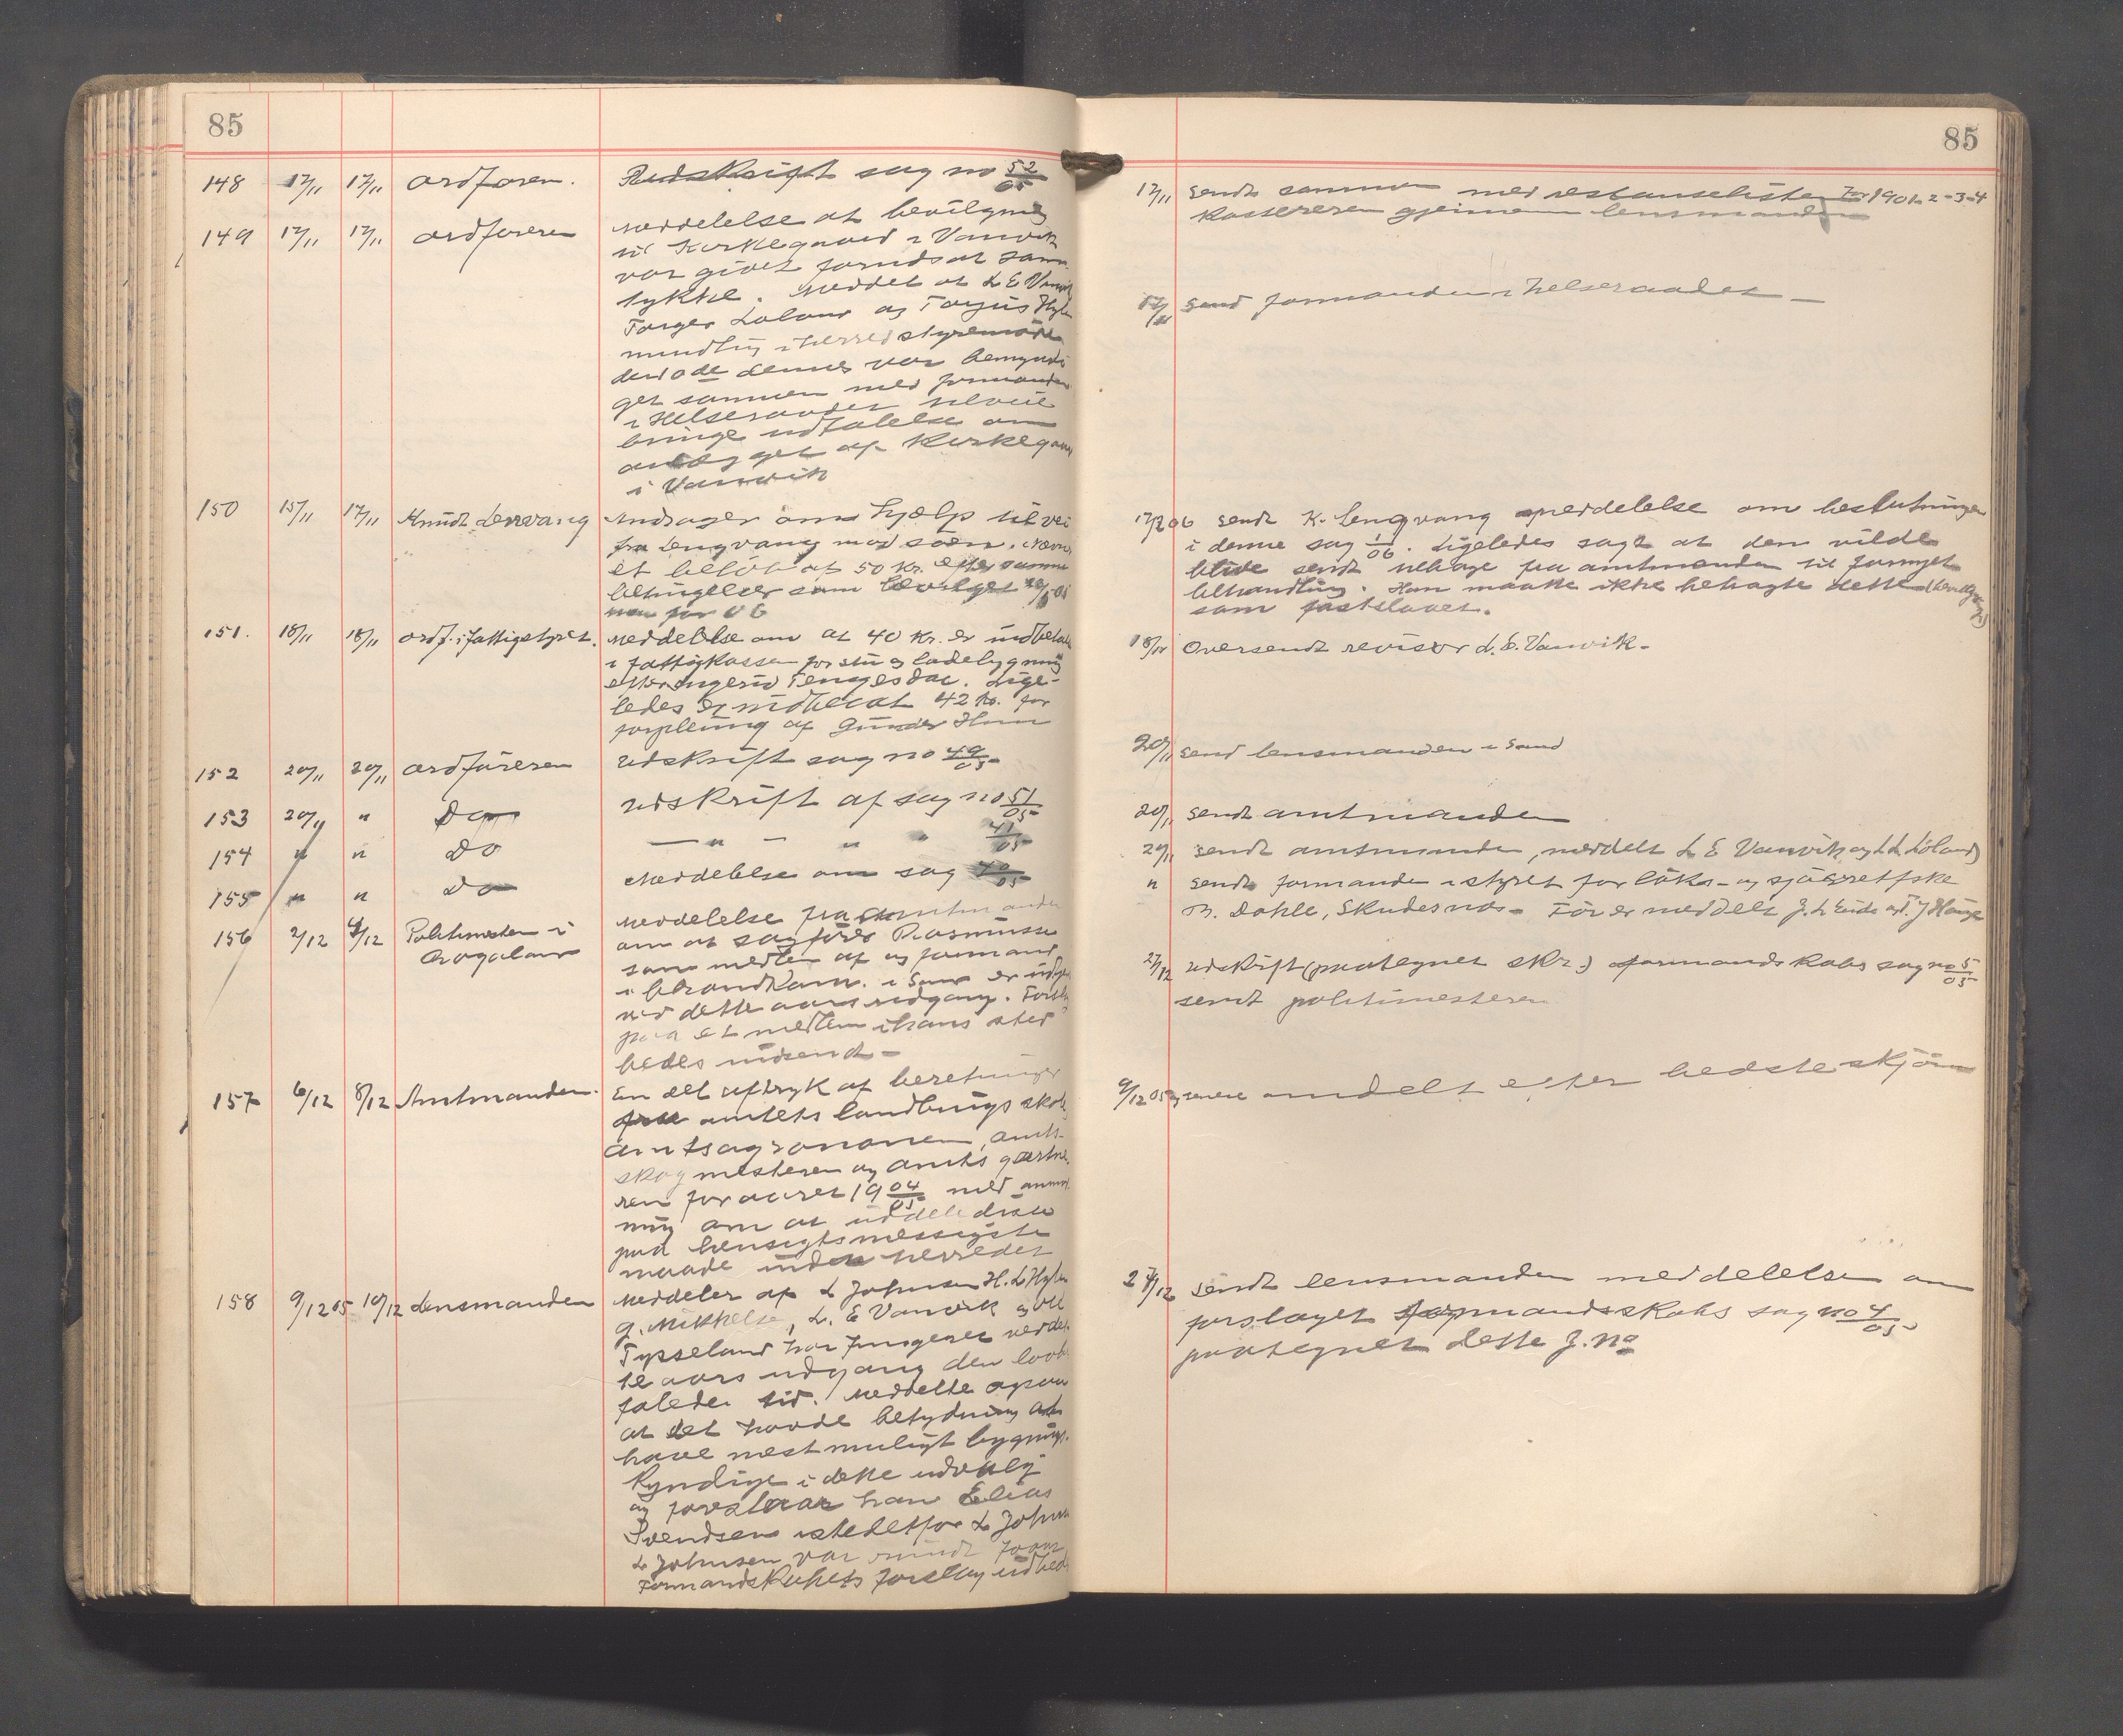 85
148 17/11 17/11 Ordføren. Udskrift sag no 52/05
149 17/11 17/11 Ordføreren Meddelelse at bevilgning
til Kirkegaard i Vanvik
var givet forudsat sam
tykke. Meddelt at L E Vanvik
Torger Løland og Torjus Hylen
mundtlig i herredsstyremøde
at de dennes var bemyndi
get sammen med formanden
i Helseraadet
bringe udtalelse om
anlægget af Kirkegaard
i Vanvik
150 15/11 17/11 Knudt Lenvang Andrager om hjælp til vei
fra Lengvang mod søen. Nævner
et beløb af 50 Kr. efter samme
betingelser som bevilget
for 06
151. 18/11 18/11 Ordf. i fattigstyret. Meddelelse om at 40 Kr. er indbetalt
i fattigkassen for stu og ladebygning
efter Tengesdal. Lige-
ledes er indbetalt 42 Kr. for
forpleining af Gunder
152 20/11 20/11 Ordføreren Udskrift sag no 49/05
153 20/11 " Do Udskrift af sag no 51/05
154 " " Do — " — " " 41/05
155 " " Do Meddelelse om sag 40/05
156 2/12 4/12 Politimesteren i Meddelelse fra Amtmanden
Rogaland om at sagfører Rasmussen
som medlem af og formand
i Brandkom. i Sand er udgaaet
ved dette aars udgang. Forslag
paa et medlem i hans sted
bedes indsendt —
157 6/12 8/12 Amtmanden. En del aftryk af beretninger
fra amtets landbrugsskole,
Amtsagronomen, amts-
skogmesteren og amtsgartne-
ren for aaret 1904/05 med anmod
ning om at uddele disse
paa hensigtsmessigste
maade inden herredet
158 9/12 05 10/12 Lensmanden Meddeler at L Johnsen H. L Hylen
G. Mikkelsen, L. E Vanvik og Ole
Tysseland har fungeret ved det
te aars udgang den lovbe
falede tid. Meddelte ogsaa
at det havde betydning at
have mest muligt bygnings-
kyndige i dette udvalg
og foreslaar han Elias
Svendsen istedetfor L Johnsen
L Johnsen var
Formandskabets forslag udbedes
85
17/11 Sendt sammen med restanselisten for 1901-2-3-4
Kassereren gjennem lensmanden
17/11 Send formanden i helseraadet —
17/2 06 Sendt K. Lengvang meddelelse om beslutningen
i denne sag 1/06. Ligeledes sagt at den vilde
blive sendt tilbage fra amtmanden til fornyet
behandling. Han maatte ikke betragte dette (bevilgning)
som fastslaaet.
18/11 Oversendt revisor L. E. Vanvik —
20/11 Send lensmanden i Sand
20/11 Sendt amtmanden
20/11 Sendt amtmanden, meddelt L E Vanvik og L L Løland
" Sendt formanden i styret for laks- og sjøørretfiske
M. Dahle, Skudesnæs — Før er meddelt J. L Eide og T. J Hauge
27/12 Udskrift (paategnet skr.) formandskabs sag no 5/05
sendt politimesteren
9/12 05 og senere omdelt efter bedste skjøn
27/12 Sendt lensmanden meddelelse om
forslaget formandsskabs sag no 4/05
paategnet dette J. No